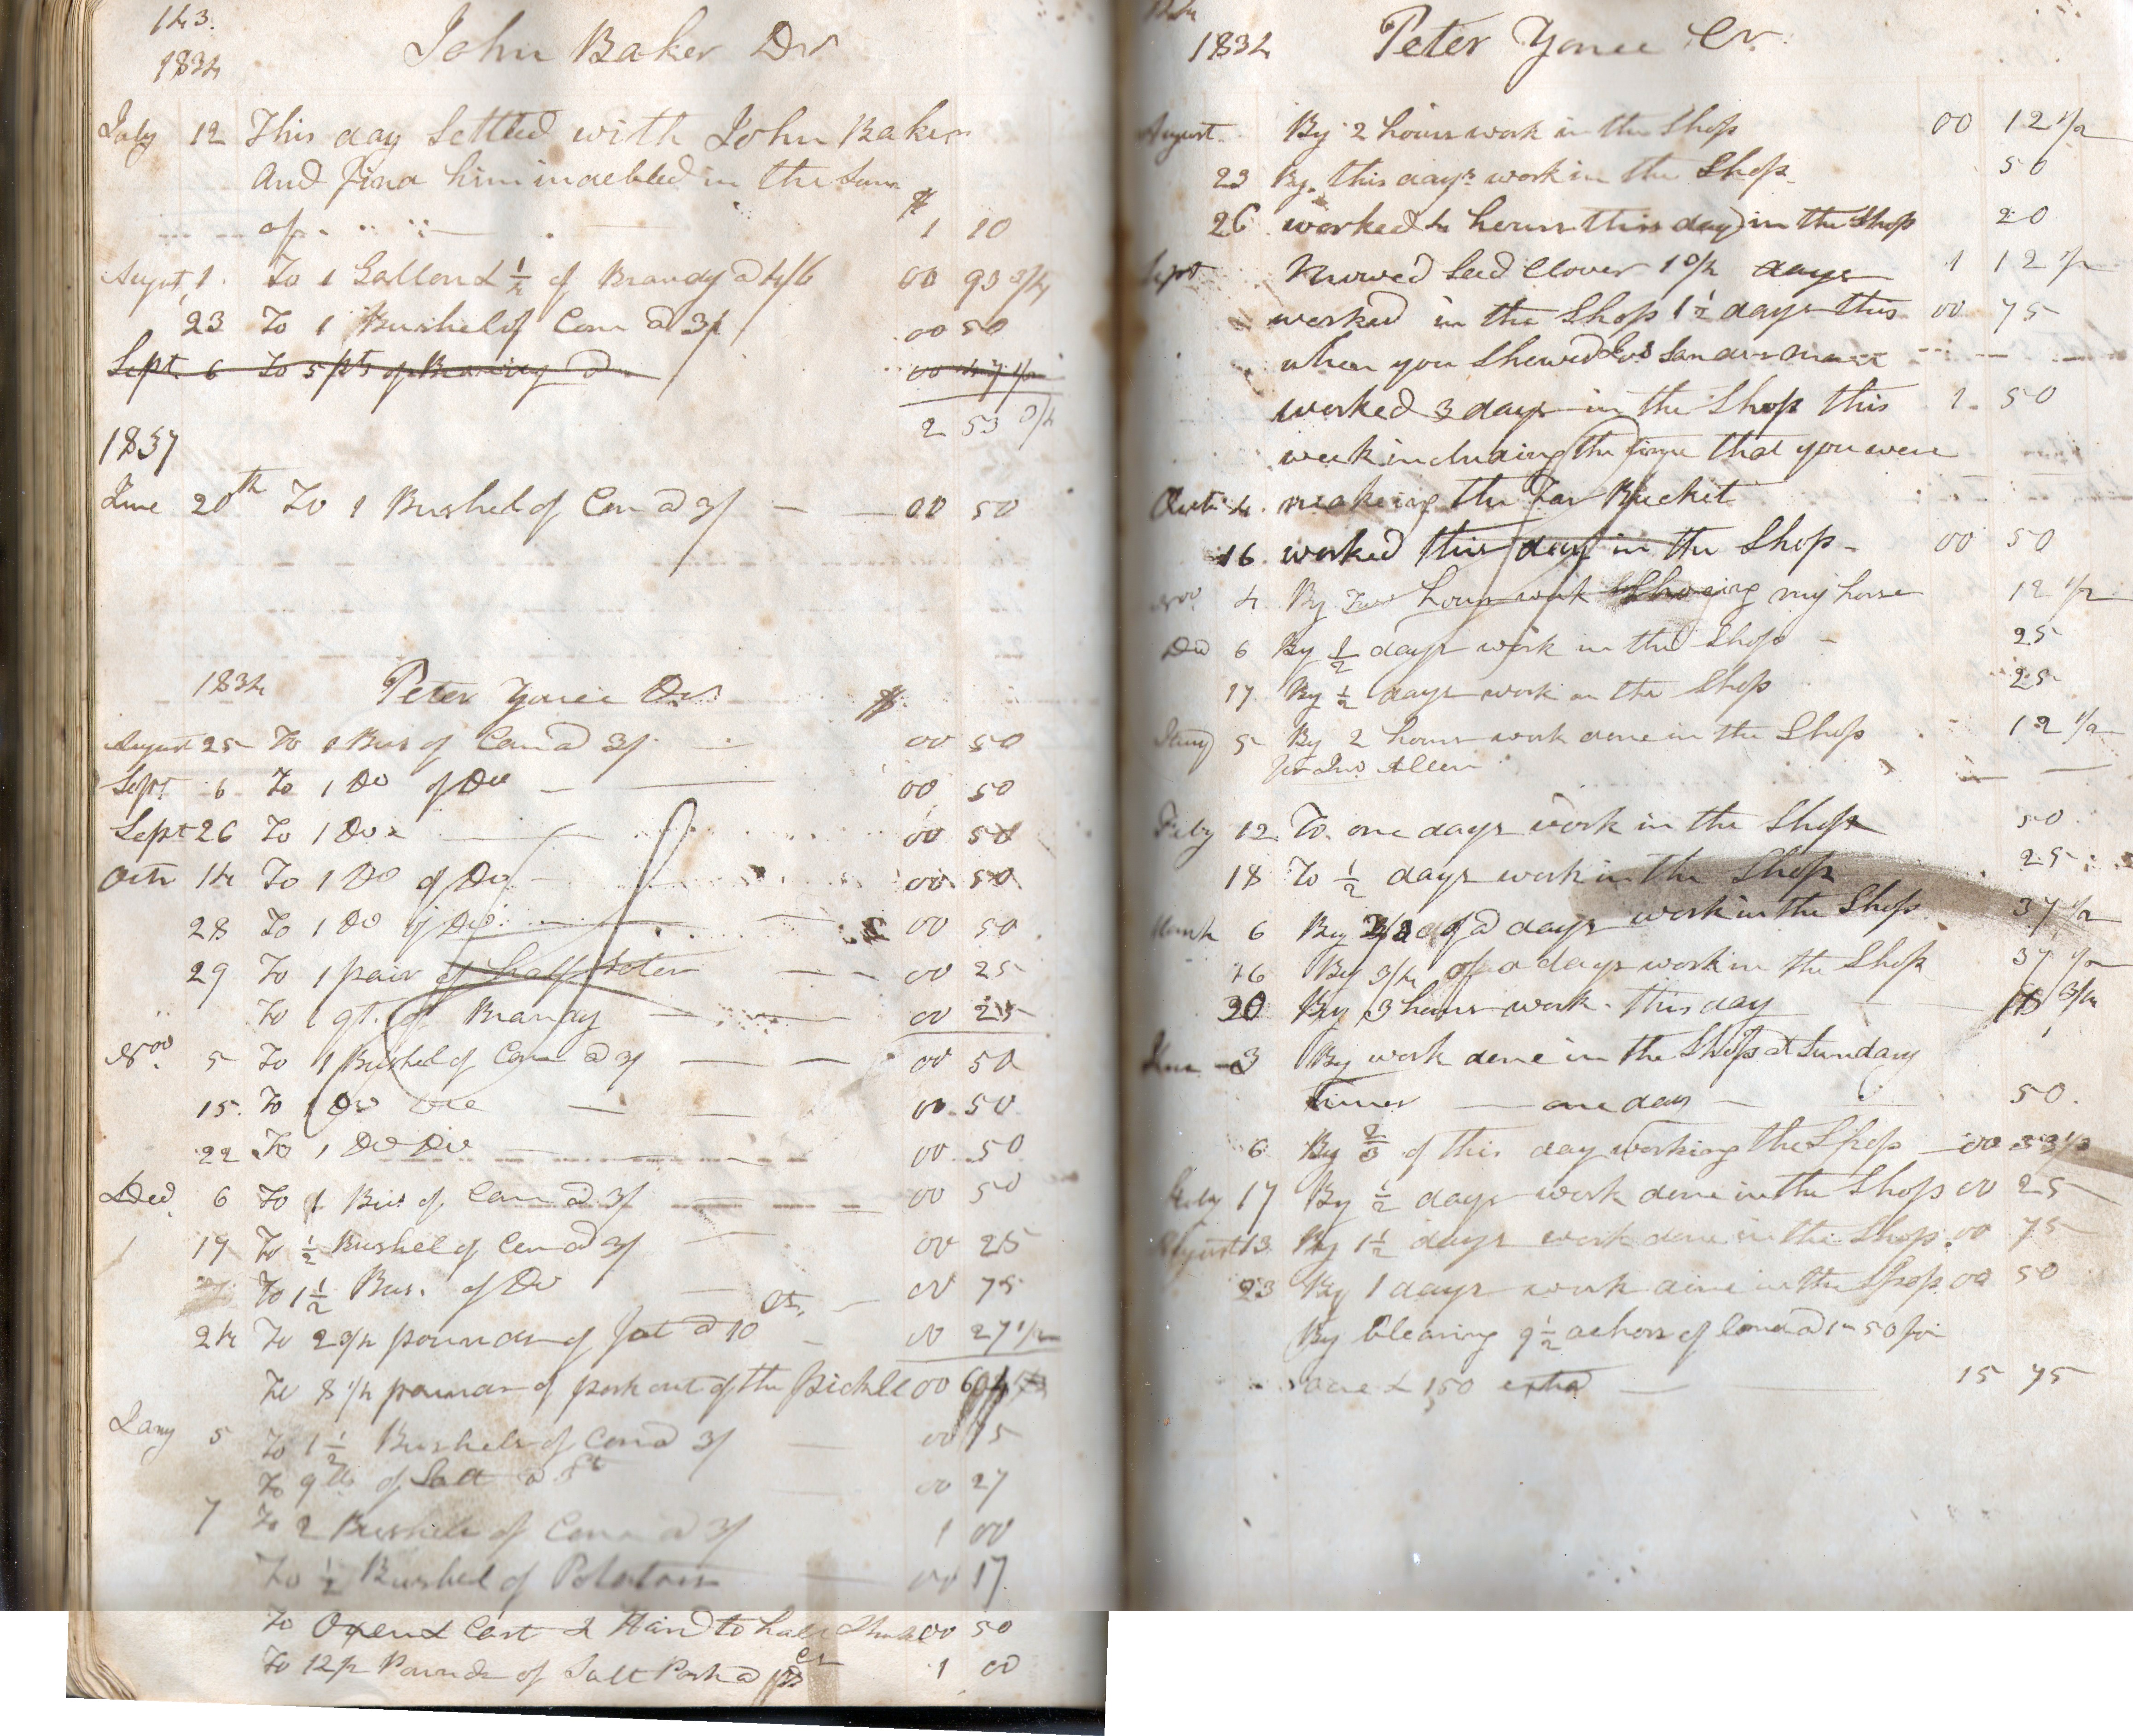 143.
1834
John Baker Dr
July 12 This day Settled with John Baker
And find him indebted in the Sum
of $ 1 10
Augst 1 To 1 Gallon & 1/2 of Brandy @ 4/6 00 93 3/4
23 To 1 Bushel of Corn @ 3/ 00 50
Sept. 6 To 5 pts of Brandy @ 00 47 1/2
2 53 3/4
1837
June 20th To 1 Bushel of Corn @ 3/ 00 50
1834 Peter Yonce Dr. $
August 25 To 1 Bus of Corn @ 3/ 00 50
Sept 6 To 1 Do of Do 00 50
Sept 26 To 1 Do 00 50
Octr 14 To 1 Do of Do 00 50
28 To 1 Do of Do 00 50
29 To 1 pair of half Soles 00 25
To 1 qt. of Brandy 00 25
Nov. 5 To 1 Bushel of Corn @ 3/ 00 50
15. To 1 Do Do 00 50
22 To 1 Do Do 00 50
Decd. 6 To 1 Bus of Corn @ 3/ 00 50
17 To 1/2 Bushel of Corn @ 3/ 00 25
To 1 1/2 Bus. of Do 00 75
24 To 2 3/4 pounds of @ 10 cts. 00 27 1/2
To 8 1/4 pounds of pork out of the pickle 00
Jany 5 To 1 1/2 Bushels of Corn @ 3/ 00 75
To 9 lb of Salt @ 00 27
7 To 2 Bushels of Corn @ 3/ 1 00
To 1/2 Bushel of Potatoes 00 17
To Oxen & Cart & Hand to hale 00 50
To 12 1/2 Pounds of Salt Pork @ cts 1 00
1834 Peter Yonce Cr.
August. By 2 hours work in the Shop 00 12 1/2
23 By. this days work in the Shop 50
26 worked 4 hours this day in the Shop 20
Sept Mowed Seed Clover days 1 12 1/2
worked in the Shop 1 1/2 days this 00 75
when you Shewed mare
worked 3 days in the Shop this 1. 50
week including the time that you were
Octr 4. makeing the Tar Bucket
16. worked this day in the Shop 00 50
Nov 4. By Two hours work Shoeing my horse 12 1/2
Dec 6 By 1/2 days work in the Shop 25
17 By 1/2 days work in the Shop 25
Jany 5 By 2 hours work done in the Shop 12 1/2
for Jno Allen
Feby 12. To. one days work in the Shop 50
18 To 1/2 days work in the Shop 25
March 6 By of a days work in the Shop 37 1/2
16 By 3/4 of a days work in the Shop 37 1/2
20 By 3 hours work this day 18 3/4
June 3 By work done in the Shop at Sundary
times one day 50.
6 By 2/3 of this day working the Shop 00 33 1/3
July 17 By 1/2 days work done in the Shop 00 25
August 13 By 1 1/2 days work done in the Shop. 00 75
23 By 1 days work done in the Shop. 00 50
By Clearing 9 1/2 achors of land @ 1 50 per
acre & 1,50 extra 15 75